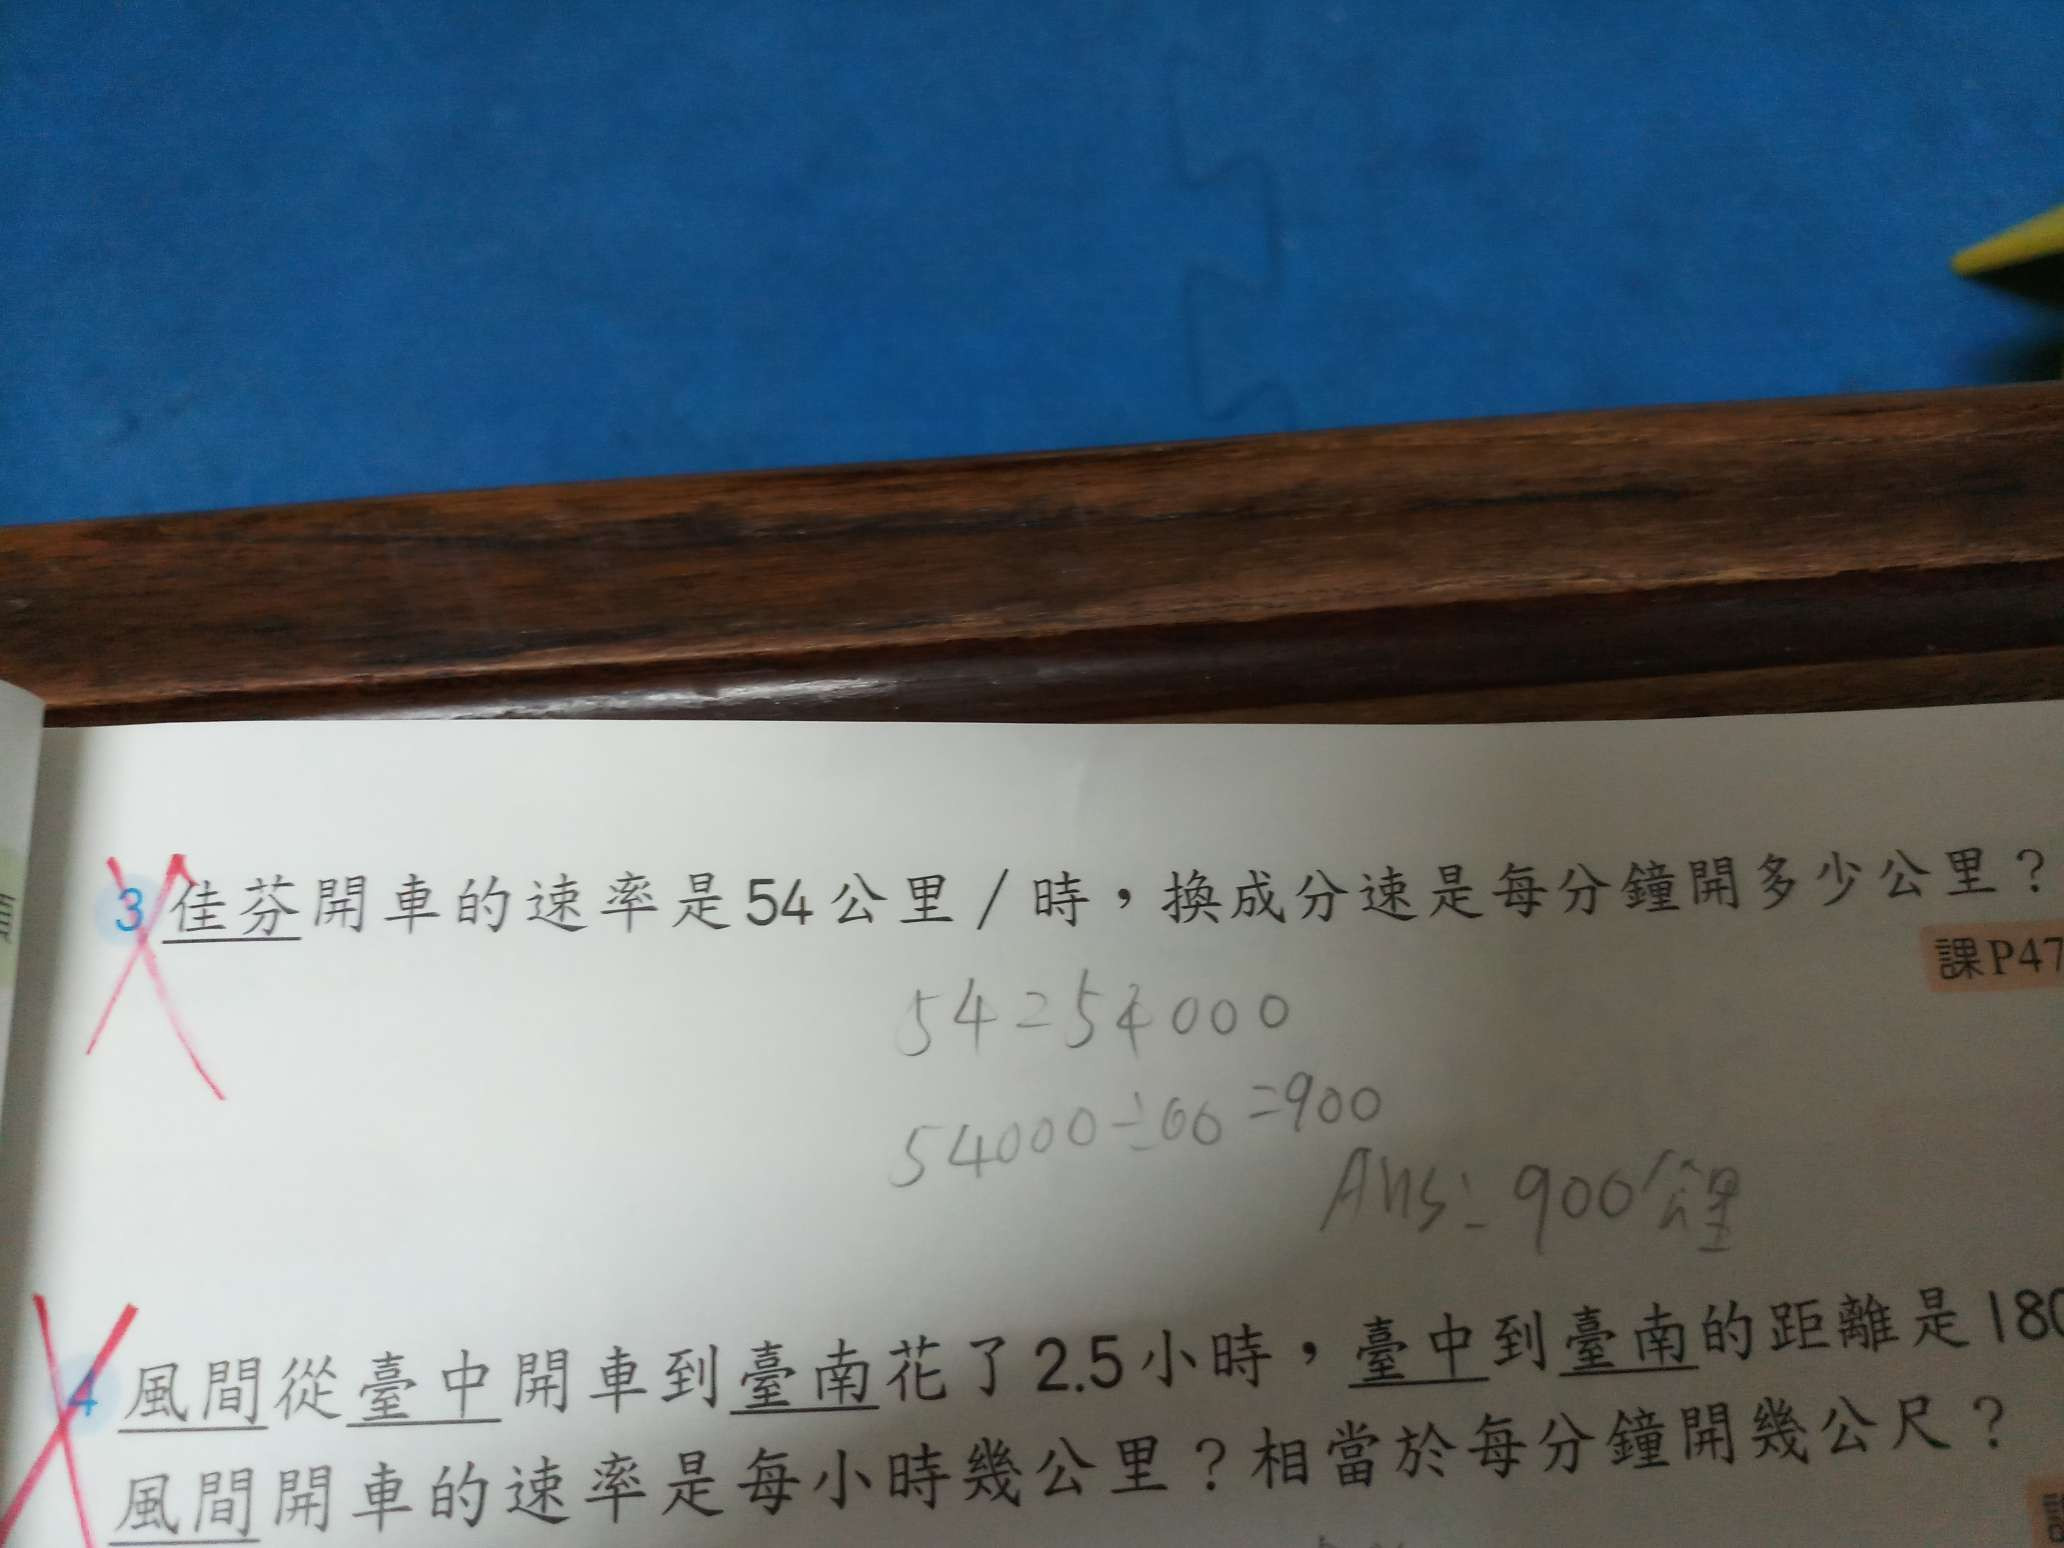 3 佳芬開車的速率是54公里/時，換成分速是每分鐘開多少公里？
課P47
54=54000
54000÷60=900
Ans：900公里
4 風間從臺中開車到臺南花了2.5小時，臺中到臺南的距離是180
風間開車的速率是每小時幾公里？相當於每分鐘開幾公尺？